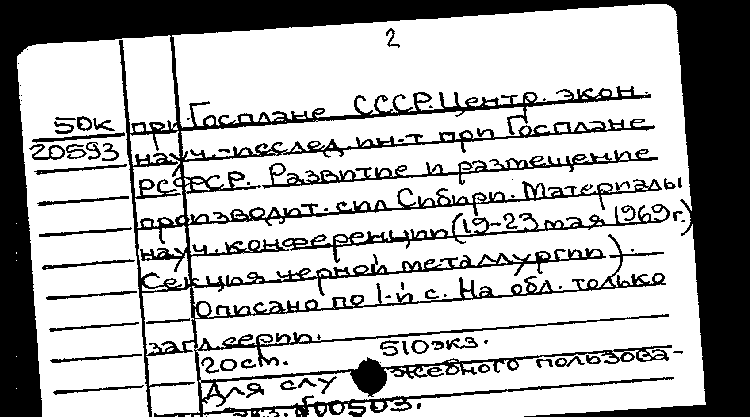 2
50К при Госплане СССР. Центр. экон.
20593 науч.-исслед. ин-т при Госплане
РСФСР. Развитие и размещение
производит. сил Сибири. Материалы
науч. конференции (19-23 мая 1969 г.)
Секция черной металлургии).
Описано по 1-й с. На обл. только
загл. серии.
20 см. 510 экз.
Для служебного пользова-
экз. №00503.